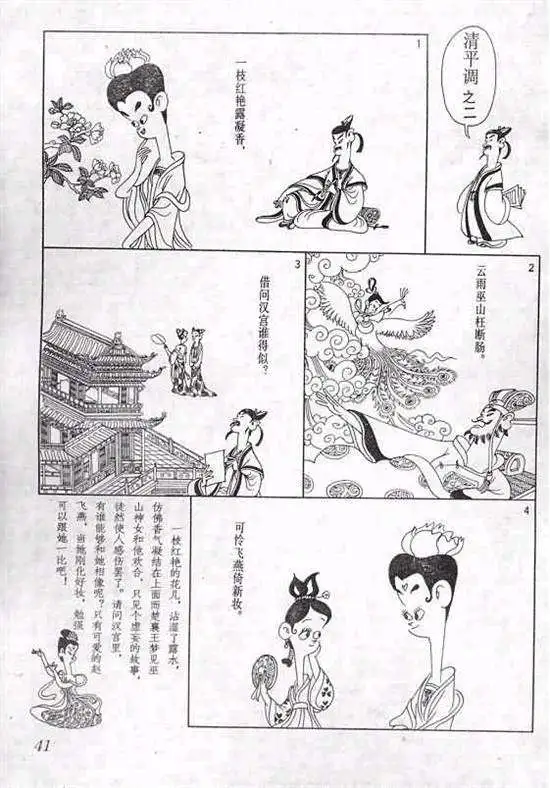 清平调 之二
1
一枝红艳露凝香，
2
云雨巫山枉断肠。
3
借问汉宫谁得似？
4
可怜飞燕倚新妆。
一枝红艳的花儿，沾湿了露水，
仿佛香气凝结在上面而楚襄王梦见巫
山神女和他欢合，只是个虚妄的故事，
徒然使人感伤罢了。请问汉宫里，
有谁能够和她相像呢？只有可爱的赵
飞燕，当她刚化好妆，勉强
可以跟她一比吧！
41